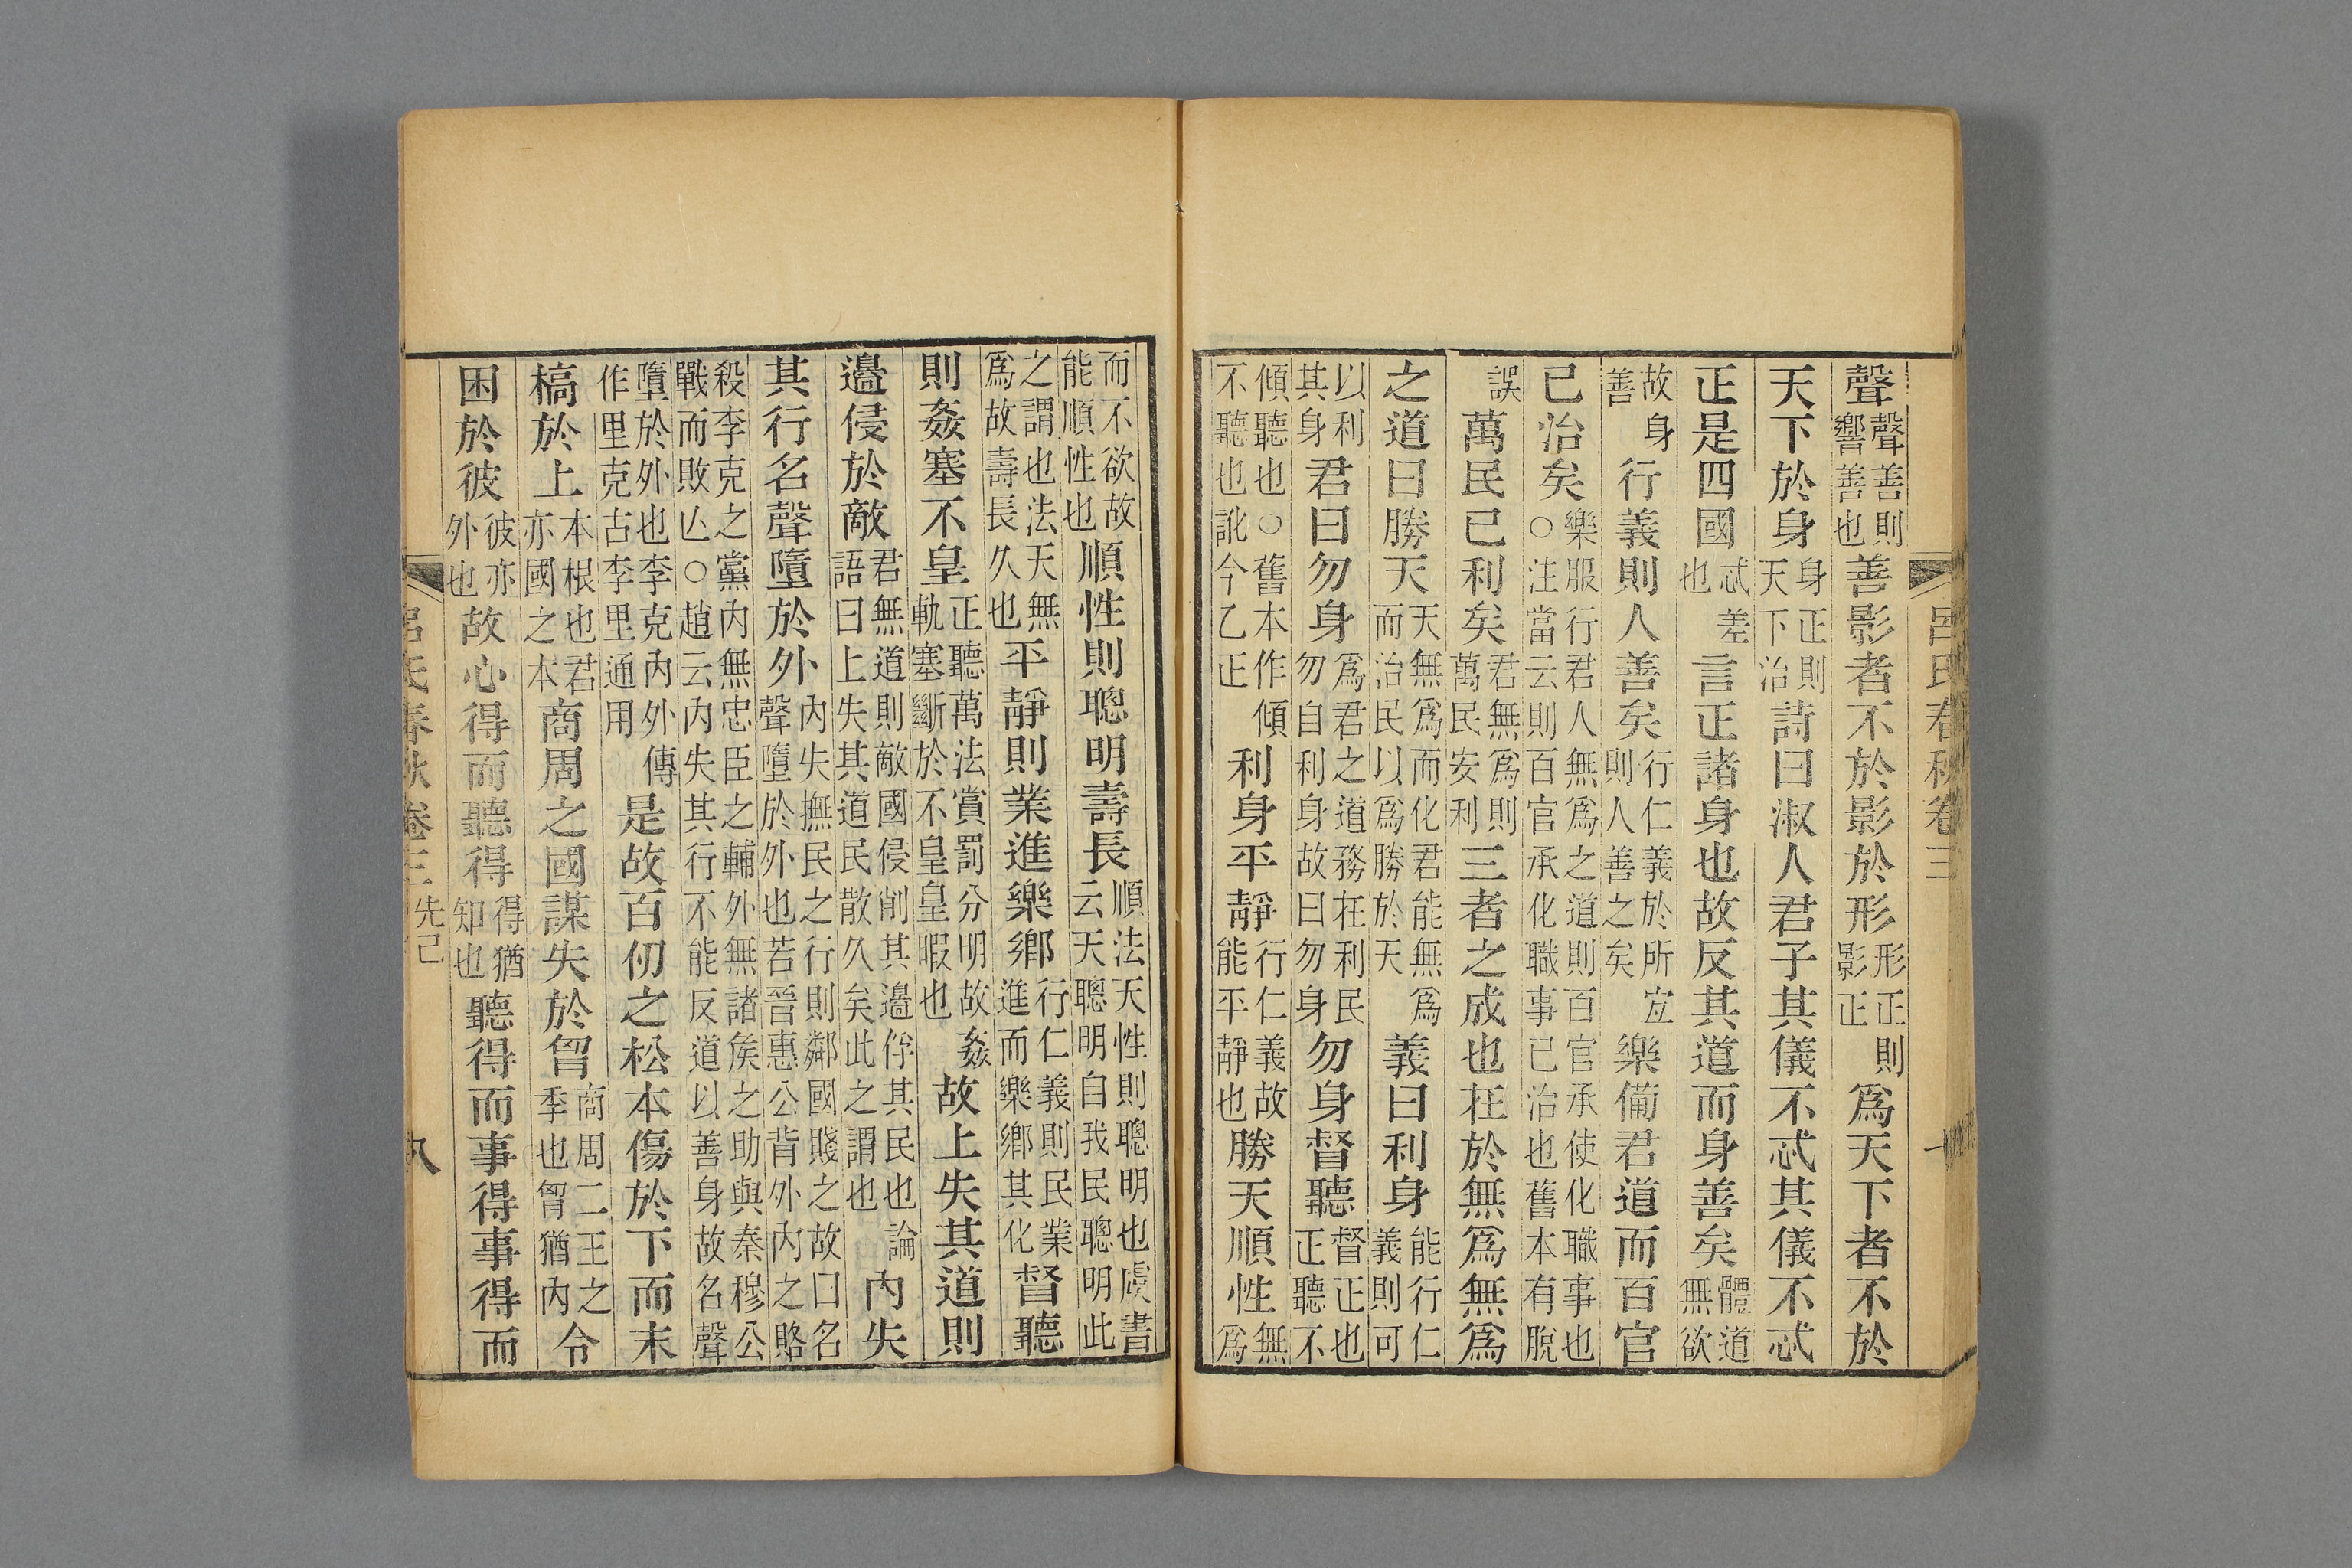 呂氏春秋卷三
聲聲善則響善也善影者不於影於形形正則影正爲天下者不於
天下於身身正則天下治詩曰淑人君子其儀不忒其儀不忒
正是四國忒差也言正諸身也故反其道而身善矣體道無欲
故身善行義則人善矣行仁義於所宜則人善之矣樂備君道而百官
已治矣樂服行君人無爲之道則百官承使化職事也○注當云則百官承化職事已治也舊本有脫
誤萬民已利矣君無爲則萬民安利三者之成也在於無爲無爲
之道曰勝天天無爲而化君能無爲而治民以爲勝於天義曰利身能行仁義則可
以利其身君曰勿身爲君之道務在利民勿自利身故曰勿身勿身督聽督正也正聽不
傾聽也○舊本作傾不聽也訛今乙正利身平靜行仁義故能平靜也勝天順性無爲
而不欲故能順性也順性則聰明壽長順法天性則聰明也虞書云天聰明自我民聰明此
之謂也法天無爲故壽長久也平靜則業進樂鄉行仁義則民業進而樂鄉其化督聽
則姦塞不皇正聽萬法賞罰分明故姦軌塞斷於不皇皇暇也故上失其道則
邊侵於敵君無道則敵國侵削其邊俘其民也論語曰上失其道民散久矣此之謂也內失
其行名聲墮於外內失撫民之行則鄰國賤之故曰名聲墮於外也若晉惠公背外內之賂
殺李克之黨內無忠臣之輔外無諸矦之助與秦穆公戰而敗亾○趙云內失其行不能反道以善身故名聲
墮於外也李克內外傳作里克古李里通用是故百仞之松本傷於下而末
槁於上本根也君亦國之本商周之國謀失於胷商周二王之季也胷猶內令
困於彼彼亦外也故心得而聽得得猶知也聽得而事得事得而
呂氏春秋卷三 先己 八